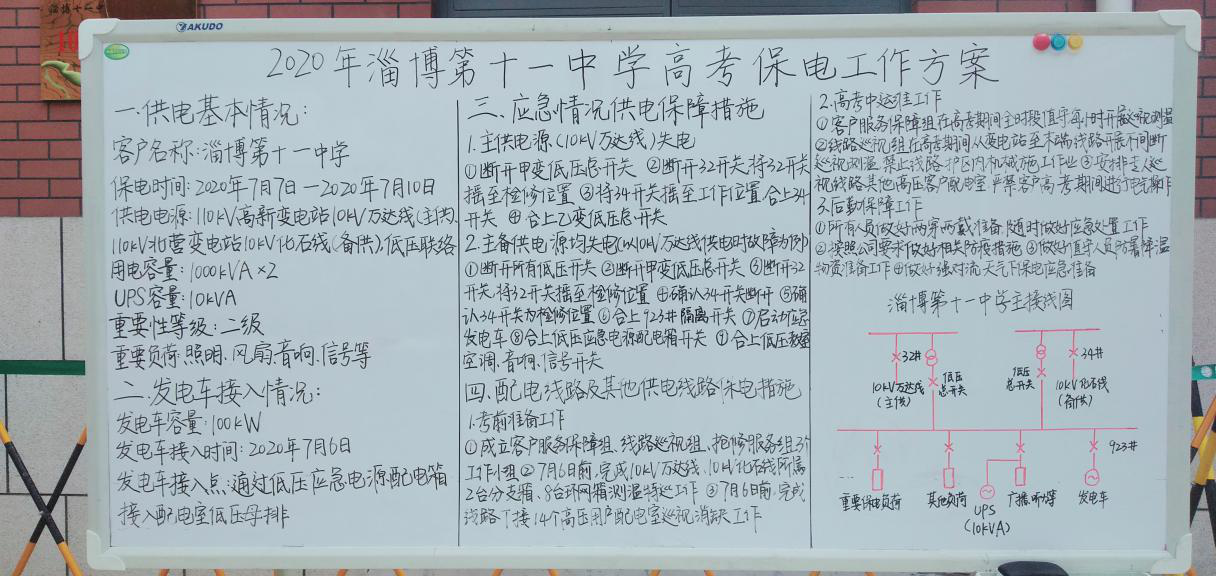 淄博十一中
AKUDO
2020年淄博第十一中学高考保电工作方案
一.供电基本情况:
客户名称:淄博第十一中学
保电时间:2020年7月7日—2020年7月10日
供电电源:110kV高新变电站10kV万达线(主供),
110kV北营变电站10kV化石线(备供),低压联络
用电容量:1000kVA×2
UPS容量:10kVA
重要性等级:二级
重要负荷:照明、风扇、音响、信号等
二、发电车接入情况:
发电车容量:100kW
发电车接入时间:2020年7月6日
发电车接入点:通过低压应急电源配电箱
接入配电室低压母排
三、应急情况供电保障措施
1.主供电源(10kV万达线)失电
①断开甲变低压总开关 ②断开32开关,将32开关
摇至检修位置 ③将34开关摇至工作位置,合上34
开关 ④合上乙变低压总开关
2.主备供电源均失电(以10kV万达线供电时故障为例)
①断开所有低压开关 ②断开甲变低压总开关 ③断开32
开关,将32开关摇至检修位置 ④确认34开关断开 ⑤确
认34开关为检修位置 ⑥合上923#隔离开关 ⑦启动应急
发电车 ⑧合上低压应急电源配电箱开关 ⑨合上低压教室
空调、音响、信号开关
四.配电线路及其他供电线路保电措施
1.考前准备工作
①成立客户服务保障组、线路巡视组、抢修服务组3个
工作小组 ②7月6日前,完成10kV万达线、10kV化石线所属
2台分支箱、8台环网箱测温特巡工作 ③7月6日前,完成
线路下接14个高压用户配电室巡视消缺工作
2.高考中运维工作
①客户服务保障组在高考期间全时段值守,每1小时开展巡视测温
②线路巡视组在高考期间,从变电站至末端线路开展不间断
巡视测温,禁止线路护区内机械施工作业 ③安排专人巡
视线路其他高压客户配电室,严禁客户高考期间进行电气操作
3.后勤保障工作
①所有人员做好两穿两戴准备,随时做好应急处置工作
②按照公司要求做好相关防疫措施 ③做好值守人员防暑降温
物资准备工作 ④做好强对流天气下保电应急准备
淄博第十一中学主接线图
32#
低压
总开关
低压
总开关
34#
10kV万达线
(主供)
10kV化石线
(备供)
923#
重要保电负荷
其他负荷
UPS
(10kVA)
广播听力等
发电车